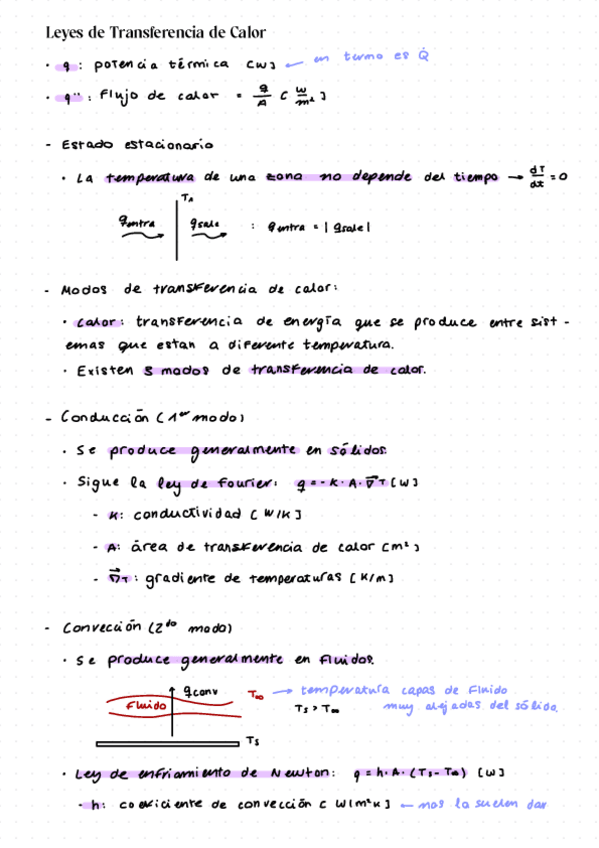 Leyes de Transferencia de Calor
· q : potencia térmica [W] ← en termo es Q̇
· q'' : Flujo de calor = q/A [W/m²]
- Estado estacionario
· La temperatura de una zona no depende del tiempo → dT/dt = 0
TA
qentra qsale : qentra = |qsale|
- Modos de transferencia de calor:
· Calor: transferencia de energía que se produce entre sist-
emas que estan a diferente temperatura.
· Existen 3 modos de transferencia de calor.
- Conducción (1er modo)
· Se produce generalmente en sólidos.
· Sigue la ley de Fourier: q = -K·A·∇⃗T [W]
- K: conductividad [W/K]
- A: área de transferencia de calor [m²]
- ∇⃗T: gradiente de temperaturas [K/m]
- Convección (2do modo)
· Se produce generalmente en fluidos.
qconv T∞ → temperatura capas de Fluido
Fluido Ts > T∞ muy alejadas del sólido.
Ts
· Ley de enfriamiento de Newton: q = h·A·(Ts - T∞) [W]
- h: coeficiente de convección [W/m²K] ← nos la suelen dar